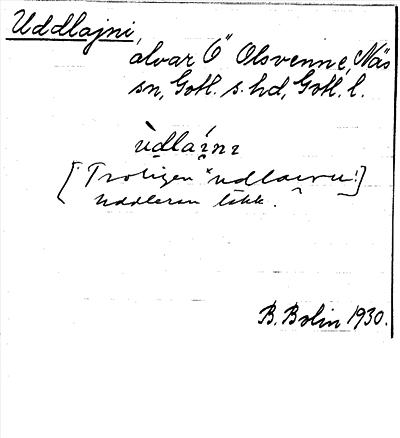 Uddlajni,
alvar Ö" Olsvenne, Näs
sn, Gotl. s. hd, Gotl. l.
ùdlaini
[Troligen "udlaivu!]
Uddleran
B. Bolin 1930.